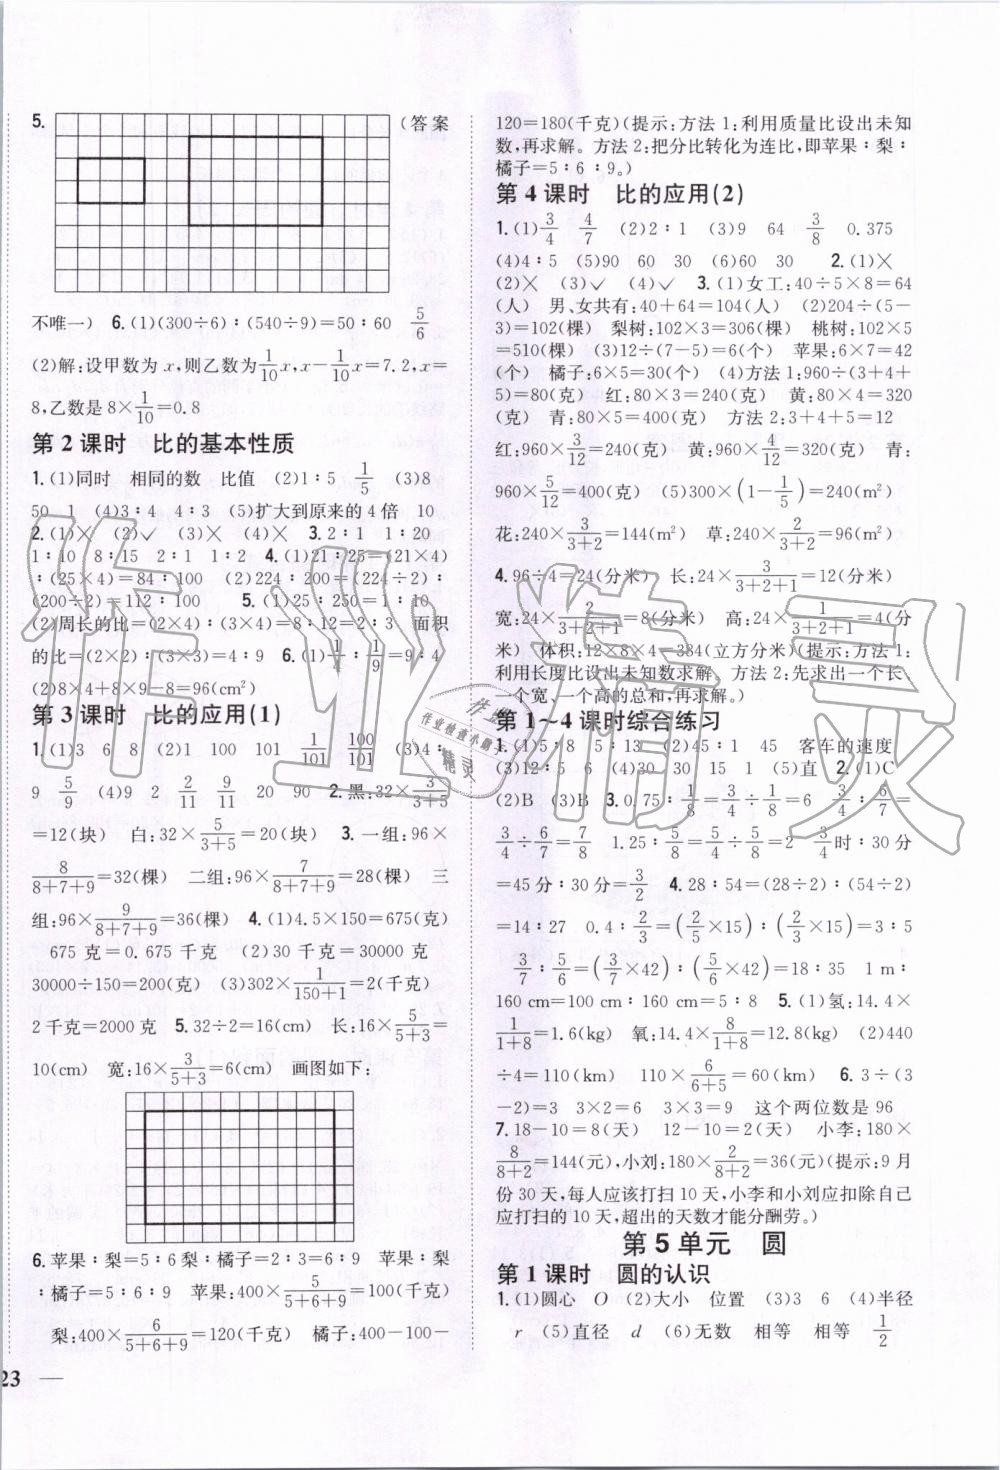 5.
(答案
不唯一) 6.(1)(300÷6)∶(540÷9)=50∶60 5/6
(2)解:设甲数为 x,则乙数为 1/10 x,x-1/10 x=7.2,x=
8,乙数是 8×1/10=0.8
第 2 课时 比的基本性质
1.(1)同时 相同的数 比值 (2)1∶5 1/5 (3)8
50 1 (4)3∶4 4∶3 (5)扩大到原来的 4 倍 10
2.(1)× (2)✓ (3)× (4)× 3.2∶1 1∶20
1∶10 8∶15 2∶1 1∶2 4.(1)21∶25=(21×4)
∶(25×4)=84∶100 (2)224∶200=(224÷2)∶
(200÷2)=112∶100 5.(1)25∶250=1∶10
(2)周长的比=(2×4)∶(3×4)=8∶12=2∶3 面积
的比=(2×2)∶(3×3)=4∶9 6.(1)1/4∶1/9=9∶4
(2)8×4+8×9-8=96(cm²)
第 3 课时 比的应用(1)
1.(1)3 6 8 (2)1 100 101 1/101 100/101 (3)4∶
9 5/9 (4)9 2 2/11 9/11 20 90 2.黑:32×3/(3+5)
=12(块) 白:32×5/(3+5)=20(块) 3.一组:96×
8/(8+7+9)=32(棵) 二组:96×7/(8+7+9)=28(棵) 三
组:96×9/(8+7+9)=36(棵) 4.(1)4.5×150=675(克)
675 克=0.675 千克 (2)30 千克=30000 克
30000÷150=200(克) (3)302×1/(150+1)=2(千克)
2 千克=2000 克 5.32÷2=16(cm) 长:16×5/(5+3)=
10(cm) 宽:16×3/(5+3)=6(cm) 画图如下:
6.苹果∶梨=5∶6 梨∶橘子=2∶3=6∶9 苹果∶梨∶
橘子=5∶6∶9 苹果:400×5/(5+6+9)=100(千克)
梨:400×6/(5+6+9)=120(千克) 橘子:400-100-
23
120=180(千克)(提示:方法 1:利用质量比设出未知
数,再求解。方法 2:把分比转化为连比,即苹果∶梨∶
橘子=5∶6∶9。)
第 4 课时 比的应用(2)
1.(1)3/4 4/7 (2)2∶1 (3)9 64 3/8 0.375
(4)4∶5 (5)90 60 30 (6)60 30 2.(1)×
(2)× (3)✓ (4)✓ 3.(1)女工:40÷5×8=64
(人) 男、女共有:40+64=104(人) (2)204÷(5-
3)=102(棵) 梨树:102×3=306(棵) 桃树:102×5
=510(棵) (3)12÷(7-5)=6(个) 苹果:6×7=42
(个) 橘子:6×5=30(个) (4)方法 1:960÷(3+4+
5)=80(克) 红:80×3=240(克) 黄:80×4=320
(克) 青:80×5=400(克) 方法 2:3+4+5=12
红:960×3/12=240(克) 黄:960×4/12=320(克) 青:
960×5/12=400(克) (5)300×(1-1/5)=240(m²)
花:240×3/(3+2)=144(m²) 草:240×2/(3+2)=96(m²)
4.96÷4=24(分米) 长:24×3/(3+2+1)=12(分米)
宽:24×2/(3+2+1)=8(分米) 高:24×1/(3+2+1)=4(分
米) 体积:12×8×4=384(立方分米)(提示:方法 1:
利用长度比设出未知数求解。方法 2:先求出一个长、
一个宽、一个高的总和,再求解。)
第 1～4 课时综合练习
1.(1)5∶8 5∶13 (2)45∶1 45 客车的速度
(3)12∶5 6 (4)30 30 15 1 (5)直 2.(1)C
(2)B (3)B 3.0.75∶1/8=3/4÷1/8=6 3/4∶6/7=
3/4÷6/7=7/8 1.25∶5/8=5/4÷5/8=2 3/4时∶30 分
=45 分∶30 分=3/2 4.28∶54=(28÷2)∶(54÷2)
=14∶27 0.4∶2/3=(2/5×15)∶(2/3×15)=3∶5
3/7∶5/6=(3/7×42)∶(5/6×42)=18∶35 1 m∶
160 cm=100 cm∶160 cm=5∶8 5.(1)氢:14.4×
1/(1+8)=1.6(kg) 氧:14.4×8/(1+8)=12.8(kg) (2)440
÷4=110(km) 110×6/(6+5)=60(km) 6.3÷(3
-2)=3 3×2=6 3×3=9 这个两位数是 96
7.18-10=8(天) 12-10=2(天) 小李:180×
8/(8+2)=144(元),小刘:180×2/(8+2)=36(元)(提示:9 月
份 30 天,每人应该打扫 10 天,小李和小刘应扣除自己
应打扫的 10 天,超出的天数才能分酬劳。)
第 5 单元 圆
第 1 课时 圆的认识
1.(1)圆心 O (2)大小 位置 (3)3 6 (4)半径
r (5)直径 d (6)无数 相等 相等 1/2
作业精灵
作业检查小题手
精灵